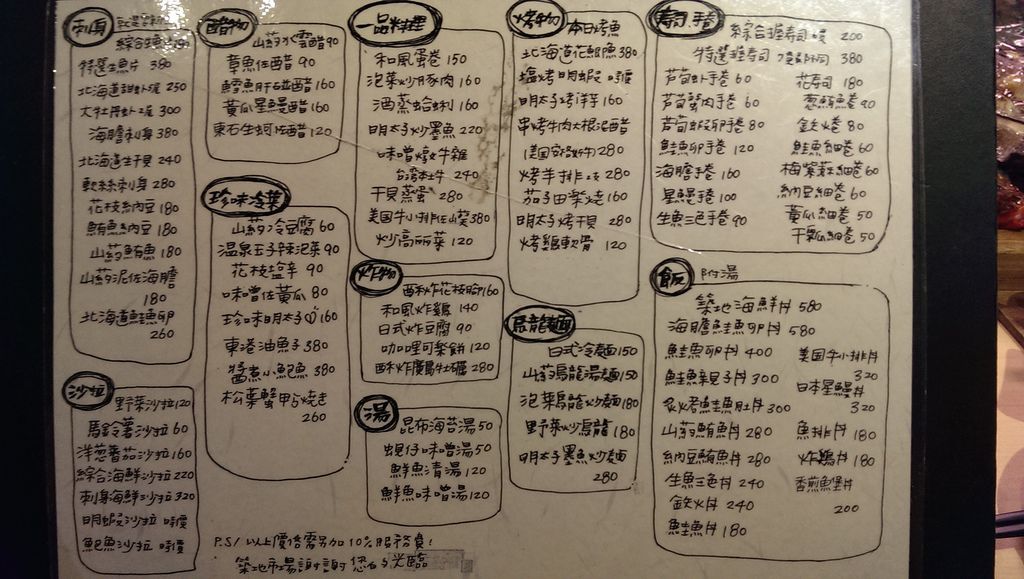 刺身
綜合生魚
特選生魚片 380
北海道甜蝦 250
大牡丹蝦 300
海膽刺身 380
北海道生干貝 240
軟絲刺身 280
花枝納豆 180
鮪魚納豆 180
山藥鮪魚 180
山藥泥佐海膽
180
北海道鮭魚卵
260
沙拉
野菜沙拉 120
馬鈴薯沙拉 60
洋蔥番茄沙拉 160
綜合海鮮沙拉 220
刺身海鮮沙拉 320
明蝦沙拉 時價
鮑魚沙拉 時價
醋物
山藥水雲醋 90
章魚佐醋 90
鱈魚肝碰醋 160
黃瓜星鰻醋 160
東石生蚵佐醋 120
珍味冷菜
山藥冷豆腐 60
温泉玉子辣泡菜 90
花枝塩辛 90
味噌佐黃瓜 80
珍味明太子 160
東港油魚子 380
醬煮小鮑魚 380
松葉蟹甲羅燒き
260
一品料理
和風蛋卷 150
泡菜炒豚肉 160
酒蒸蛤蜊 160
明太子炒墨魚 220
味噌燉牛雜
台灣本土牛 240
干貝蒸蛋 280
美国牛小排佐山葵 380
炒高麗菜 120
炸物
酥炸花枝腳 160
和風炸雞 140
日式炸豆腐 90
咖哩可樂餅 120
酥炸廣島牡礪 280
湯
昆布海苔湯 50
蜆仔味噌湯 50
鮮魚清湯 120
鮮魚味噌湯 120
烤物
本日烤魚
北海道花鯽魚 380
塩烤明蝦 時價
明太子烤洋芋 160
串烤牛肉大根泥醋
(美國安格斯牛) 280
烤羊排 280
茄子田楽燒 160
明太子烤干貝 280
烤雞軟骨 120
烏龍麵
日式冷麵 150
山藥烏龍湯麵 150
泡菜烏龍炒麵 180
野菜炒烏龍 180
明太子墨魚炒麵
280
寿司 手卷
綜合握寿司 200
特選握寿司 380
蘆筍蝦手卷 60
蘆筍蟹肉手卷 60
蘆筍蝦卵手卷 80
鮭魚卵手卷 120
海膽手卷 160
星鰻手卷 100
生魚三色手卷 90
花寿司 180
蔥鮪卷 90
鉄火卷 80
鮭魚細卷 60
梅紫蘇細卷 60
納豆細卷 60
黃瓜細卷 50
干瓢細卷 50
飯
附湯
築地海鮮丼 580
海膽鮭魚卵丼 580
鮭魚卵丼 400
鮭魚親子丼 300
炙烤鮭魚肚丼 300
山藥鮪魚丼 280
納豆鮪魚丼 280
生魚三色丼 240
鉄火丼 240
鮭魚丼 180
美国牛小排丼
320
日本星鰻丼
320
魚排丼 180
炸雞丼 180
香煎魚堡丼
200
P.S/ 以上價格需另加10%服務費!
築地市場謝謝您的光臨